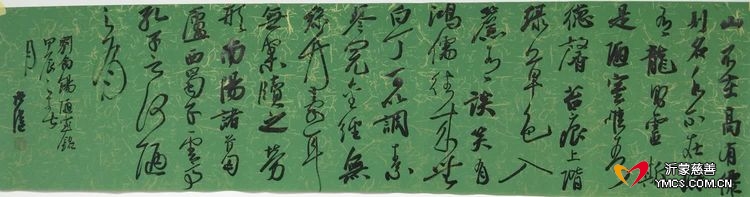 山不在高有仙
则名水不在深
有龍则靈斯
是陋室惟吾
德馨苔痕上階
绿草色入
簾青谈笑有
鸿儒往来無
白丁可以調素
琴阅金经無
丝竹之乱耳
無案牍之劳
形南陽諸葛
廬西蜀子雲亭
孔子云何陋
之有
劉禹锡陋室铭
甲辰
沂蒙慈善
YMCS.COM.CN